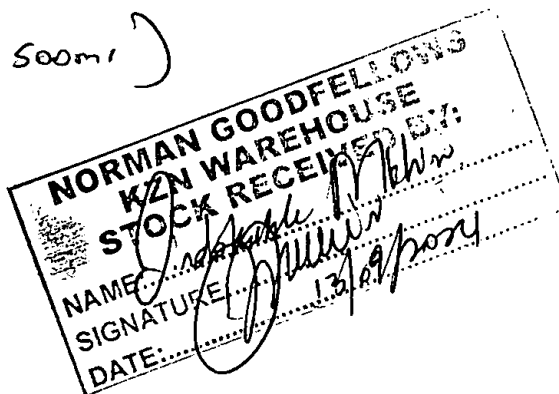 500ml )
NORMAN GOODFELLOWS
KZN WAREHOUSE
STOCK RECEIVED BY:
NAME:
SIGNATURE:
DATE: 13/09/2024